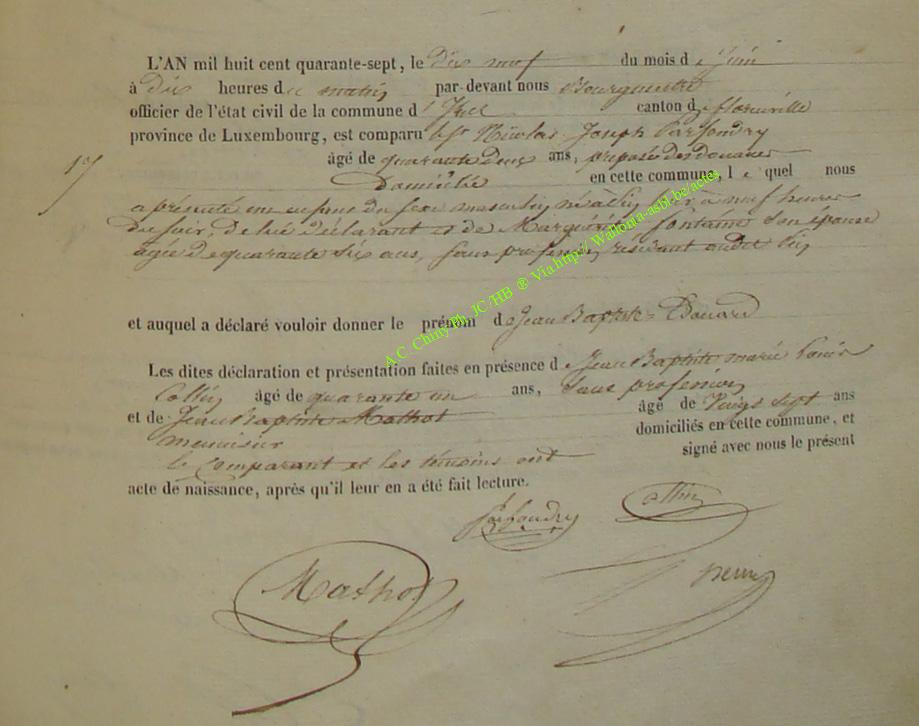 L'AN mil huit cent quarante-sept, le dix neuf du mois de Juin
à dix heures du matin par-devant nous Bourgmestre
officier de l'état civil de la commune d' canton de florenville
province de Luxembourg, est comparu le Sr Nicolas Joseph Parfondry
17
âgé de quarante deux ans, préposé des douanes
Domicilié en cette commune, l e quel nous
a présenté un enfant du sexe masculin né à hier à neuf heures
du soir, de lui déclarant et de Marguérite fontaine son épouse
agée de quarante six ans, sans profession, résidant audit
et auquel a déclaré vouloir donner le prénom de Jean Baptiste Edouard
Les dites déclaration et présentation faites en présence de Jean Baptiste marie Louis
Collin âgé de quarante un ans, sans profession
et de Jean Baptiste Mathot âgé de Vingt sept ans
menuisier domiciliés en cette commune, et
le Comparant et les témoins ont signé avec nous le présent
acte de naissance, après qu'il leur en a été fait lecture.
Parfondry Collin
Mathot
A.C. Chiny Ph. JC/HB ® Via.http// Wallonia-asbl.be/actes